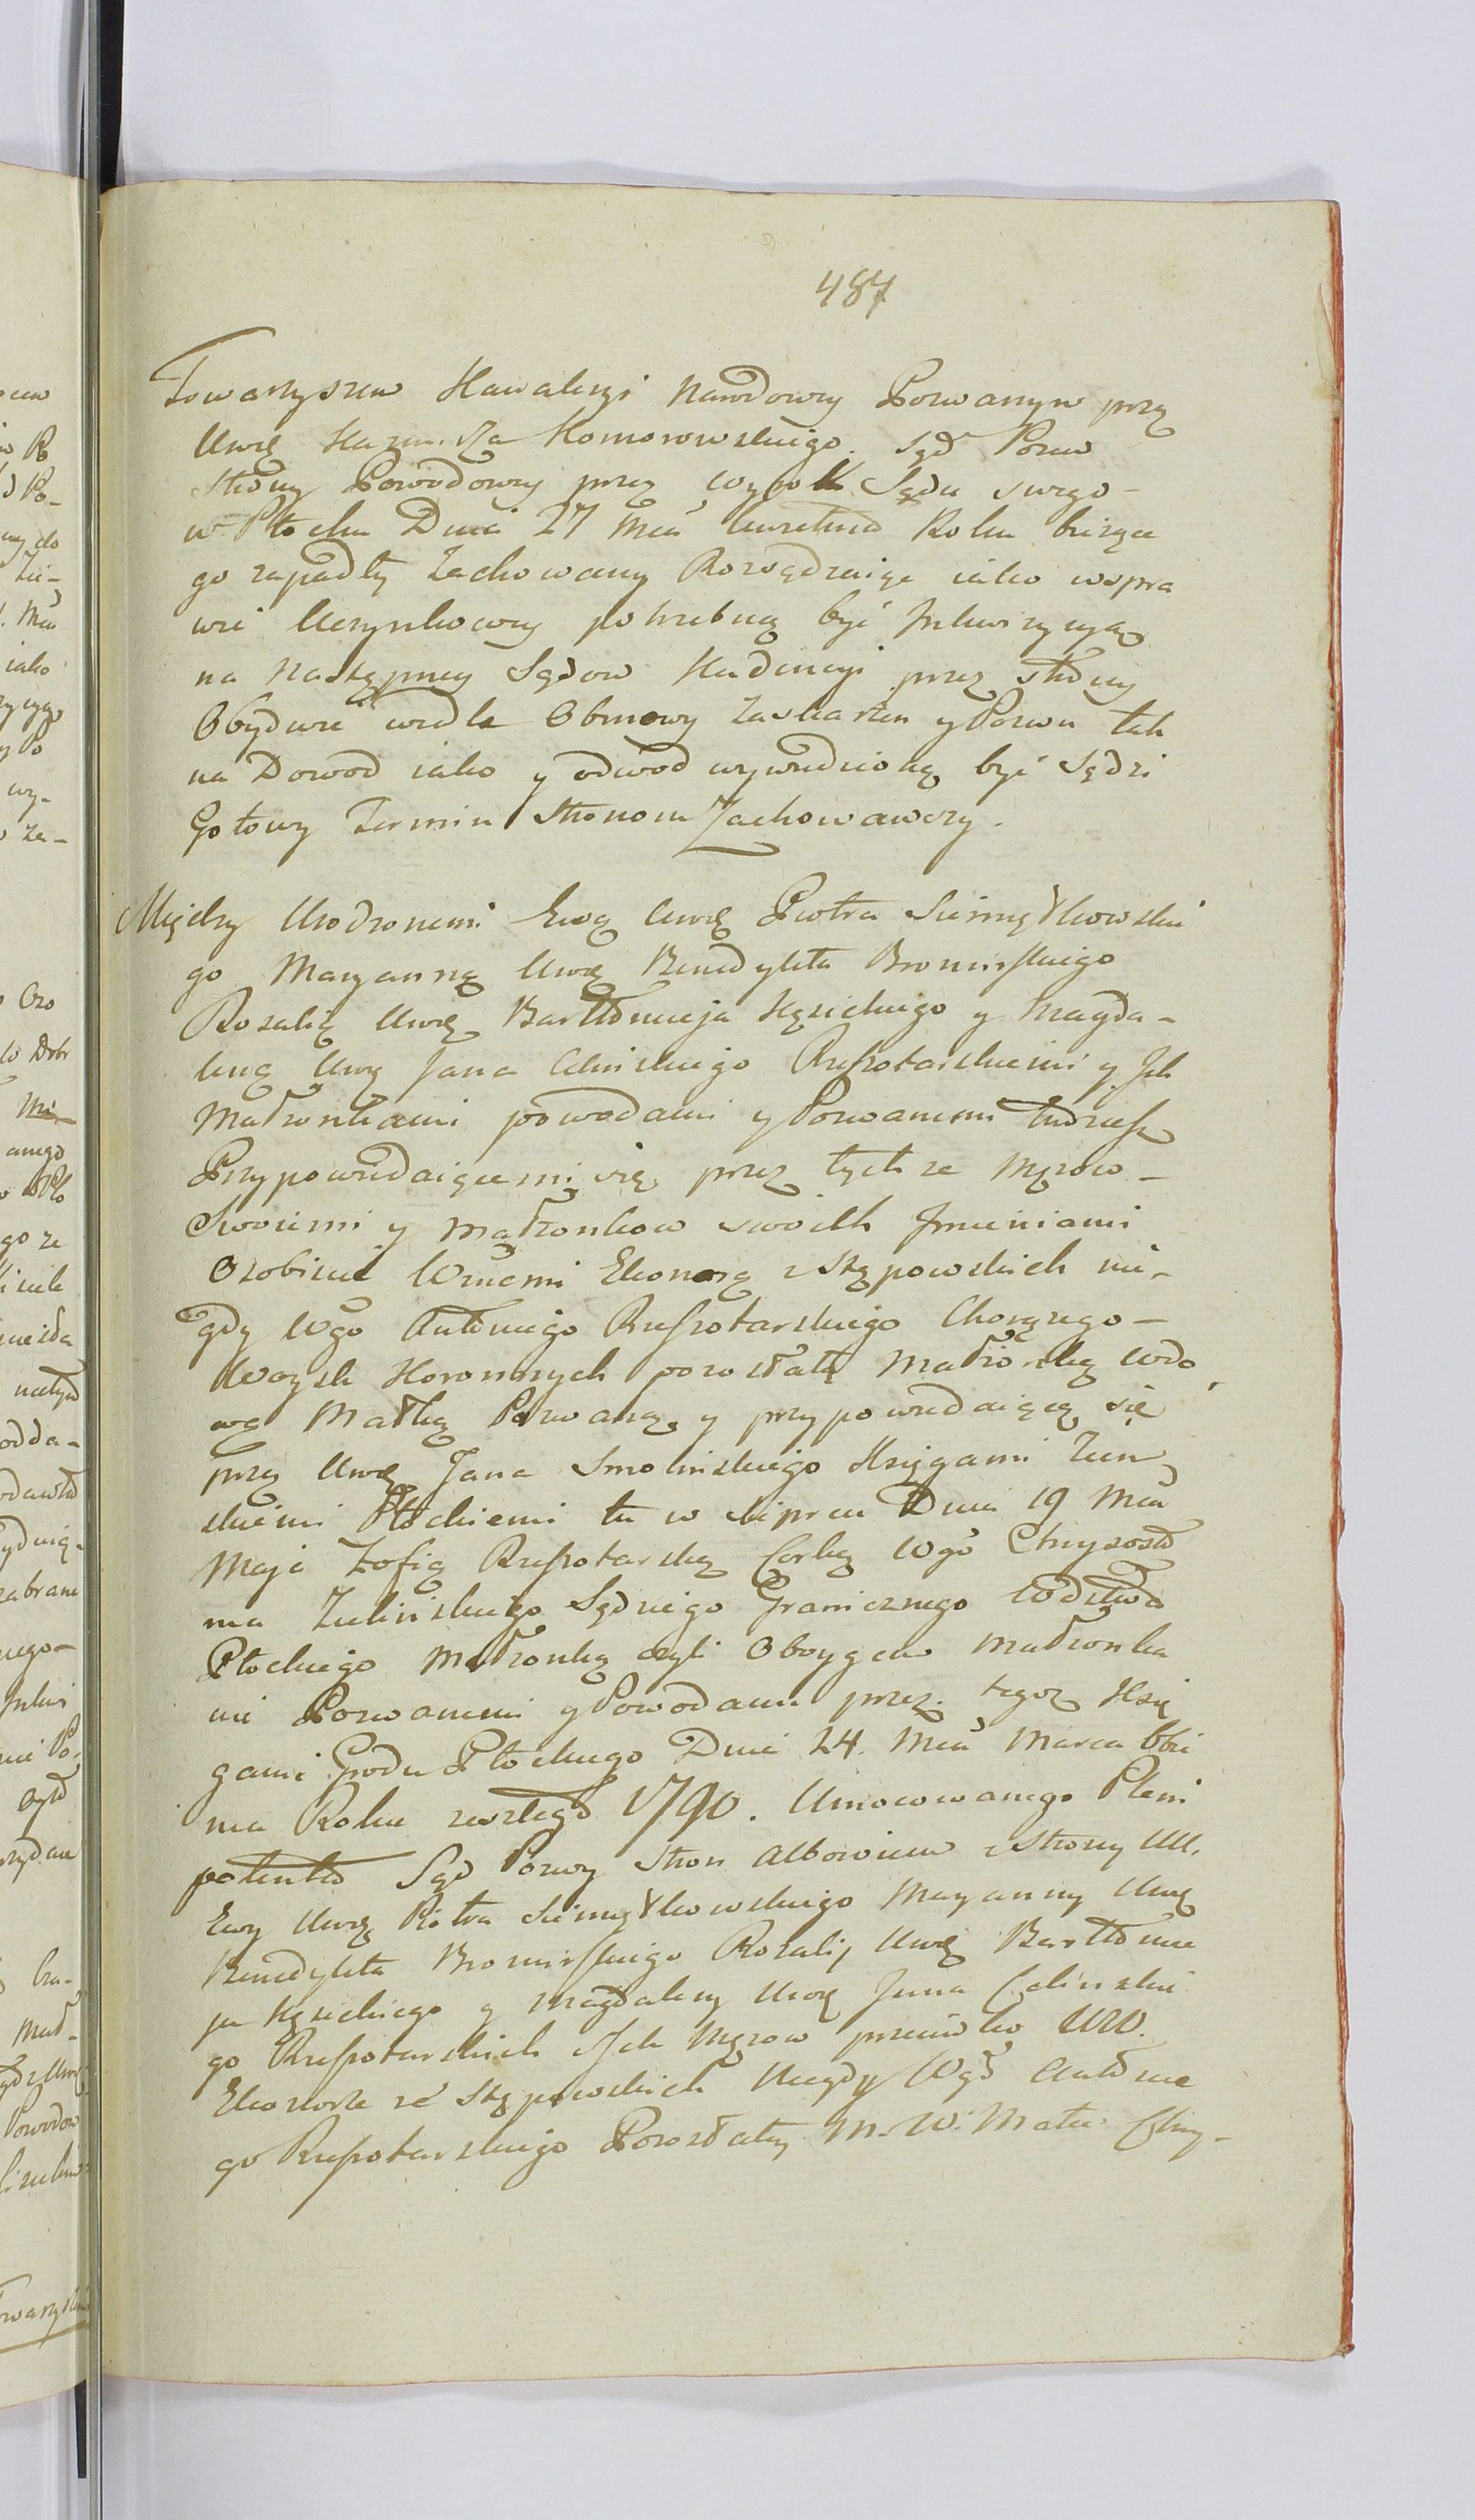 487
Towarzyszem Kawaleryi Narodowey Pozwanym przez
Urrę Kazmirza Komorowskiego. Sąd Pozew
Strony Powodowey przez wyrok Sądu swego
w Płocku Dnia 27 Mca Kwietnia Roku bieżące
go zapadły Zachowany Rozsądzaiąc iako wspra
wie Uczynkowey potrzebną być Inkwizycyą
na Następney Sądow Kadencyi przez Strony
Obydwie wedle Obmowy Zaskarżeń y Pozwu tak
na Dowod iako y odwod wywiedzioną być Sądzi
Gotowy Termin Stronom Zachowawszy.
Między Urodzonemi Ewą Urrę Piotra Siemiątkowskie
go Maryanną Urrę Benedykta Bromirskiego
Rozalią Urrę Bartłomieja Kęsickiego y Magda-
leną Urrę Jana Celinskiego Ruszotarskiemi y Ich
Małżonkami powodami y Pozwanemi tudziesz
Przypowiedaiącemi się przez tychże Mężow
Swoiemi y Małżonkow swoich Imieniami
Osobiście Wnemi Eleonorą z Stępowskich nie-
gdy Wgo Antoniego Ruszotarskiego Chorążego
Woysk Koronnych pozostałą Małżonką Wdo
wą Matką Pozwaną y przypowiedaiącą się
przez Urrę Jana Smolinskiego Księgami Ziem
skiemi Płockiemi tu w Lipcu Dnia 19 Mca
Maja Zofią Ruszotarską Corką Wgo Chryzosto
ma Zielinskiego Sędziego Granicznego Wdztwa
Płockiego Małżonką czyli Oboygiem Małżonka
mi Pozwanemi y Powodami przez tegoż Księ
gami Grodu Płockiego Dnia 24. Mca Marca
ma Roku zeszłego 1790. Umocowanego Pleni
potenta Sąd Pozwy Stron Albowiem z Strony UU.
Ewy Urrę Piotra Siemiątkowskiego Maryanny Urrę
Benedykta Bromirskiego Rozalij Urrę Bartłomie
ja Kęsickiego y Magdaleny Urrę Jana Celinskie
go Ruszotarskich Ich Mężow przeciwko WW.
Eleonorze ze Stępowskich Niegdy Wgo Antonie
go Ruszotarskiego Pozostałey M. W. Matce Chry-